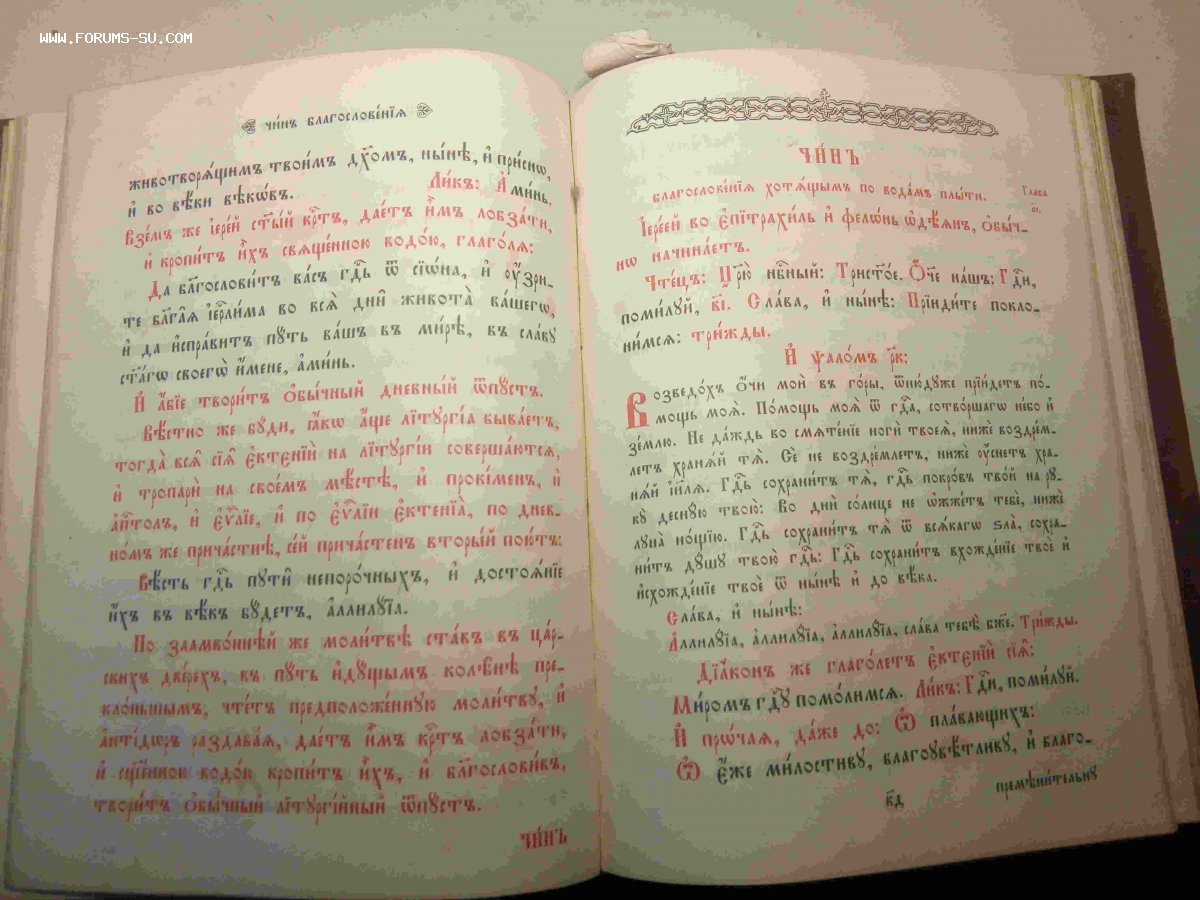 WWW.FORUMS-SU.COM
чи́нъ благослове́нїѧ
животворѧ́щимъ твои́мъ дх҃омъ, ны́нѣ, и҆ при́снѡ,
и҆ во вѣ́ки вѣкѡ́въ. Ли́къ: А҆ми́нь.
Взе́мъ же і҆ере́й ст҃ы́й крⷭ҇тъ, дае́тъ и҆̀мъ лобза́ти,
и҆ кропи́тъ и҆̀хъ свѧще́нною водо́ю, глаго́лѧ:
Да бл҃гослови́тъ ва́съ гдⷭ҇ь ѿ сїѡ́на, и҆ ᲂу҆́зри-
те бл҃га̑ѧ і҆ерⷭ҇ли́ма во всѧ̑ дни̑ живота̀ ва́шегѡ,
и҆ да и҆спра́витъ пꙋ́ть ва́шъ въ ми́рѣ, въ сла́вꙋ
ст҃а́гѡ своегѡ̀ и҆́мене, а҆ми́нь.
И҆ а҆́бїе твори́тъ ѻ҆бы́чный дне́вный ѿпꙋ́стъ.
Вѣ́стно же бꙋ́ди, ꙗ҆́кѡ а҆́ще лїтꙋргі́а быва́етъ,
тогда̀ всѧ̑ сїѧ̑ є҆ктенїи̑ на лїтꙋргі́и соверша́ютсѧ,
и҆ тропари̑ на свое́мъ мѣ́стѣ, и҆ прокі́менъ, и҆
а҆пⷭ҇толъ, и҆ є҆ѵⷢ҇лїе, и҆ по є҆ѵⷢ҇лїи є҆ктенїа̀, по дне́в-
но́мъ же прича́стнѣ, се́й прича́стенъ вторы́й пою́тъ:
Вѣ́сть гдⷭ҇ь пꙋти̑ непоро́чныхъ, и҆ достоѧ́нїе
и҆́хъ въ вѣ́къ бꙋ́детъ, а҆ллилꙋ́їа.
По заамво́ннѣй же моли́твѣ ста́въ въ ца́р-
скихъ две́рехъ, въ пꙋ́ть и҆дꙋ́щымъ колѣ̑нѣ пре-
кло́ньшымъ, чте́тъ предположе́ннꙋю моли́твꙋ, и҆
а҆нті́дѡръ раздава́ѧ, дае́тъ и҆̀мъ крⷭ҇тъ лобза́ти,
и҆ сщ҃е́нною водо́ю кропи́тъ и҆̀хъ, и҆ бл҃гослови́въ,
твори́тъ ѻ҆бы́чный лїтꙋргі́йный ѿпꙋ́стъ.
чи́нъ
ЧИ́НЪ
благослове́нїѧ хотѧ́щымъ по вода́мъ плы́ти.
Глава
І҆ере́й во є҆пїтрахи́ль и҆ фелѡ́нь ѡ҆дѣ́ѧн, ѻ҆бы́ч-
нѡ начина́етъ.
Чте́цъ: Цр҃ю̀ нбⷭ҇ный: Трист҃о́е. Ѻ҆́ч҃е на́шъ: Гдⷭ҇и,
поми́лꙋй, в҃і. Сла́ва, и҆ ны́нѣ: Прїиди́те покло-
ни́мсѧ: три́жды.
И҆ ѱало́мъ р҃к:
Возведо́хъ ѻ҆́чи моѝ въ го́ры, ѿню́дꙋже прїи́детъ по́-
мощь моѧ̀. По́мощь моѧ̀ ѿ гдⷭ҇а, сотво́ршагѡ не́бо и҆
зе́млю. Не да́ждь во смѧте́нїе ноги̑ твоеѧ̀, нижѐ воздре́м-
летъ хранѧ́й тѧ̀. Сѐ не воздре́млетъ, нижѐ ᲂу҆́снетъ хра-
нѧ́й і҆и҃лѧ. Гдⷭ҇ь сохрани́тъ тѧ̀, гдⷭ҇ь покро́въ тво́й на рꙋ́-
кꙋ деснꙋ́ю твою̀: Во днѝ со́лнце не ѡ҆жже́тъ тебѐ, нижѐ
лꙋна̀ но́щїю. Гдⷭ҇ь сохрани́тъ тѧ̀ ѿ всѧ́кагѡ ѕла̀, сохра-
ни́тъ дꙋ́шꙋ твою̀ гдⷭ҇ь: Гдⷭ҇ь сохрани́тъ вхожде́нїе твоѐ и҆
и҆схожде́нїе твоѐ ѿ ны́нѣ и҆ до вѣ́ка.
Сла́ва, и҆ ны́нѣ:
А҆ллилꙋ́їа, а҆ллилꙋ́їа, а҆ллилꙋ́їа, сла́ва тебѣ̀ бж҃е. Три́жды.
Дїа́конъ же глаго́летъ є҆ктенїи̑ сїѧ̑:
Ми́ромъ гдⷭ҇ꙋ помо́лимсѧ. Ли́къ: Гдⷭ҇и, поми́лꙋй.
И҆ прѡ́чаѧ, да́же до: Ѡ҆ пла́вающихъ:
Ѡ҆ є҆́же ми́лостивꙋ, благоꙋвѣ́тливꙋ, и҆ благо-
к҃д
премѣни́тельнꙋ